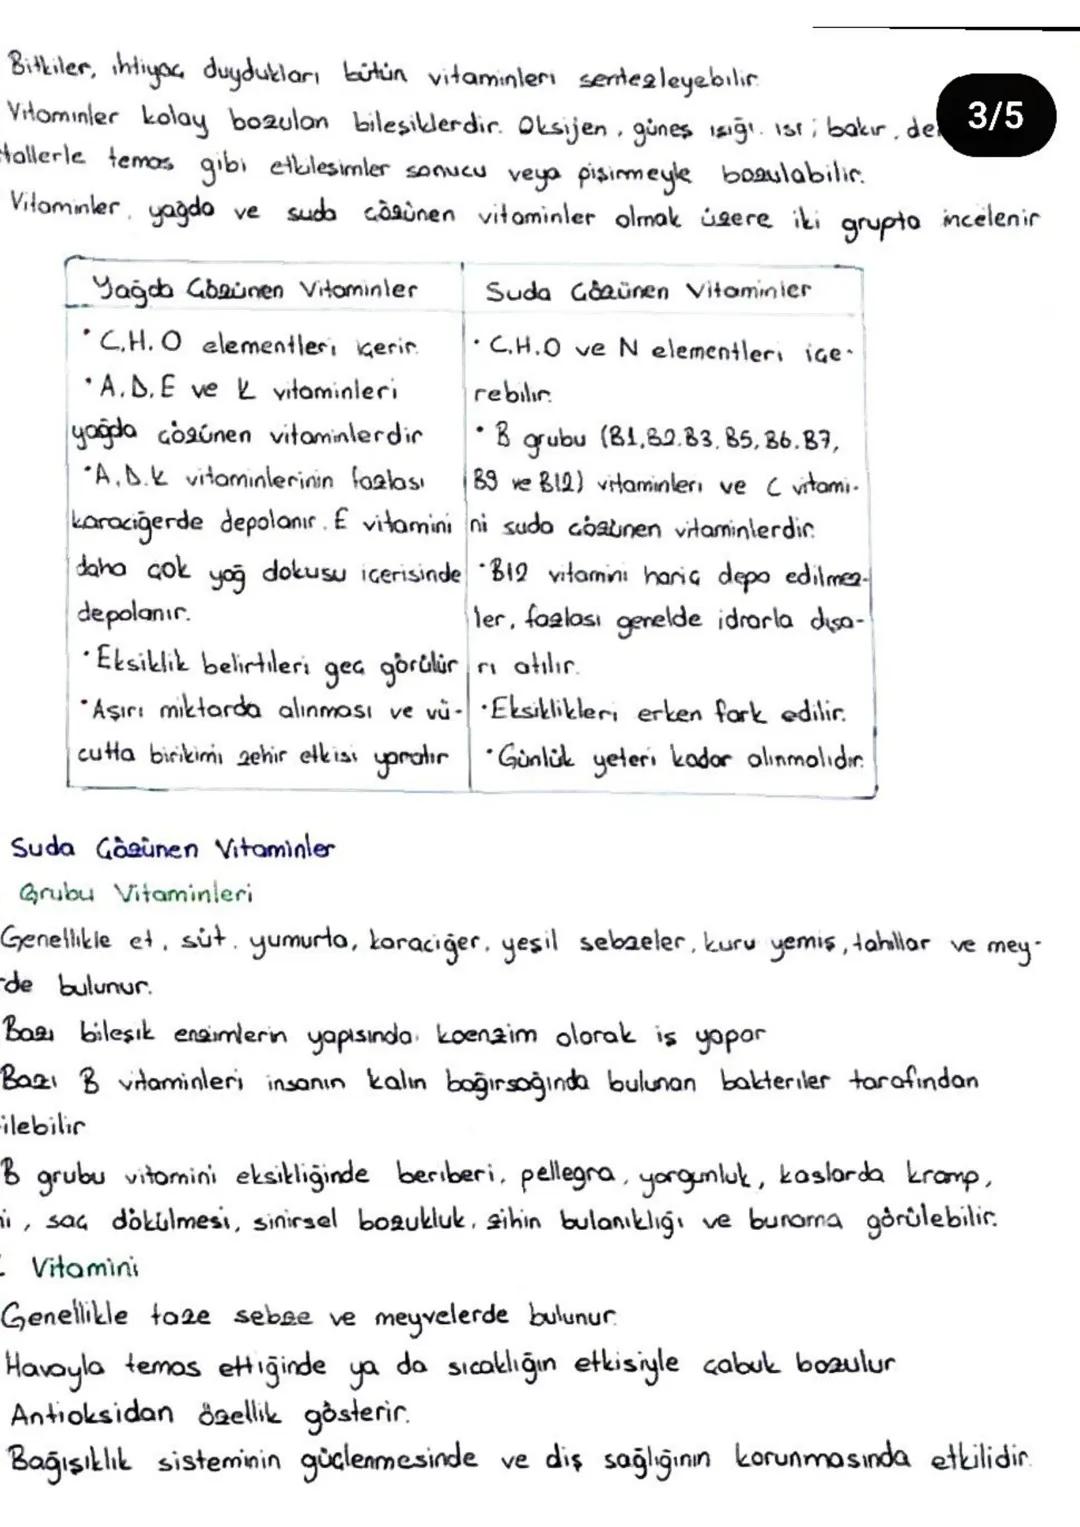 Bitkiler, ihtiyaç duydukları bütün vitaminleri sentezleyebilir.
Vitaminler kolay bozulan bileşiklerdir. Oksijen, güneş ışığı, ısı; bakır, de
3/5
tallerle temas gibi etkileşimler sonucu veya pişirmeyle bozulabilir.
Vitaminler, yağda ve suda çözünen vitaminler olmak üzere iki grupta incelenir
Yağda Çözünen Vitaminler
• C.H.O elementleri içerir.
• A.D.E ve K vitaminleri
yağda çözünen vitaminlerdir
• A.D.K vitaminlerinin fazlası
karaciğerde depolanır. E vitamini
daha çok yağ dokusu içerisinde
depolanır.
• Eksiklik belirtileri geç görülür
• Aşırı miktarda alınması ve vü-
cutta birikimi zehir etkisi yaratır
Suda Çözünen Vitaminler
• C.H.O ve N elementleri içe-
rebilir.
• B grubu (B1,B2.B3,B5,B6.B7,
B9 ve B12) vitaminleri ve C vitami-
ni suda çözünen vitaminlerdir.
• B12 vitamini hariç depo edilmez-
ler, fazlası genelde idrarla dışa-
rı atılır.
• Eksiklikleri erken fark edilir.
• Günlük yeteri kadar alınmalıdır.
Suda Çözünen Vitaminler
Grubu Vitaminleri
Genellikle et, süt, yumurta, karaciğer, yeşil sebzeler, kuru yemiş, tahıllar ve mey-
de bulunur.
Bazı bileşik enzimlerin yapısında koenzim olarak iş yapar
Bazı B vitaminleri insanın kalın bağırsağında bulunan bakteriler tarafından
ilebilir
B grubu vitamini eksikliğinde beriberi, pellegra, yorgunluk, kaslarda kramp,
i, saç dökülmesi, sinirsel bozukluk, zihin bulanıklığı ve bunama görülebilir.
Vitamini
Genellikle taze sebze ve meyvelerde bulunur.
Havayla temas ettiğinde ya da sıcaklığın etkisiyle çabuk bozulur
Antioksidan özellik gösterir.
Bağışıklık sisteminin güçlenmesinde ve diş sağlığının korunmasında etkilidir.